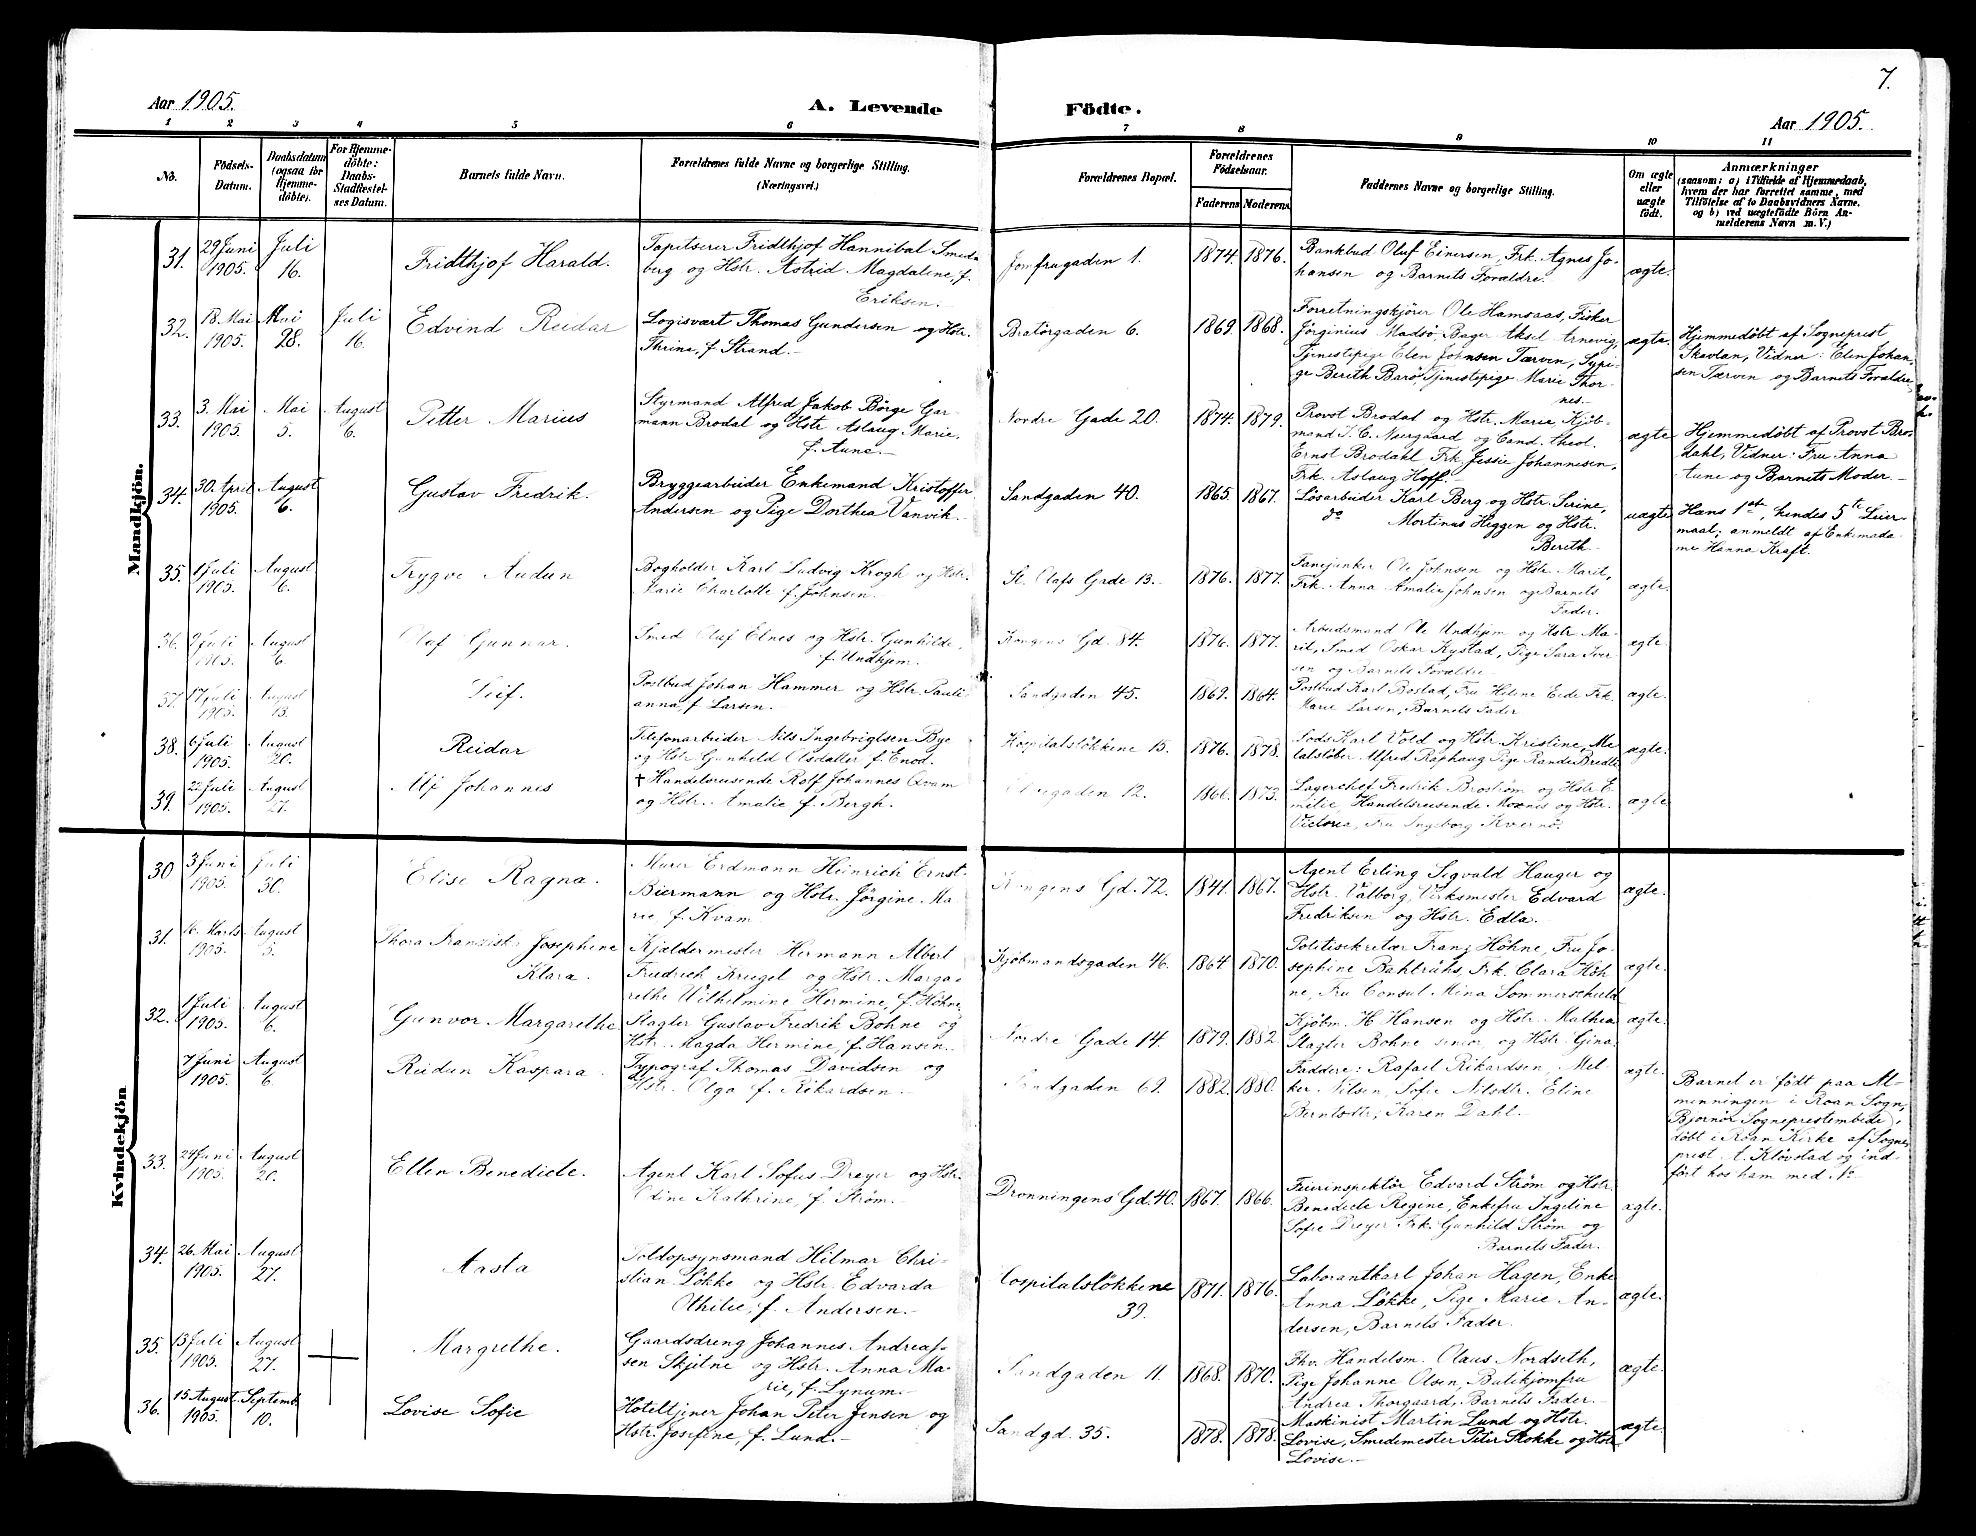 7.
Aar 1905.
A. Levende Födte.
Aar 1905.
1 2 3 4 5 6 7 8 9 10 11
No.
Födsels-
Datum.
Daabsdatum
(ogsaa for
Hjemme-
döbte).
For Hjemme-
döbte:
Daabs-
Stadfæstel-
ses Datum.
Barnets fulde Navn.
Forældrenes fulde Navne og borgerlige Stilling.
(Næringsvei.)
Forældrenes Bopæl.
Forældrenes
Födselsaar.
Faderens
Moderens
Faddernes Navne og borgerlige Stilling.
Om ægte
eller
uægte
födt.
Anmærkninger
(saasom: a) i Tilfælde af Hjemmedaab,
hvem der har forrettet samme, med
Tilföielse af to Daabsvidners Navne.
og b) ved uægtefödte Börn An-
melderens Navn m. V.)
Mandkjön.
31.
29 Juni
1905.
Juli
16.
Fridthjof Harald.
Tapitserer Fridthjof Hannibal Smeda
berg og Hstr. Astrid Magdalene, f.
Eriksen.-
Jomfrugaden 1.
1874.
1876.
Bankbud Oluf Einersen, Frk. Agnes Jo-
hansen og Barnets Forældre.
ægte.
32.
18. Mai
1905.
Mai
28.
Juli
16.
Edvind Reidar
Logisvært Thomas Gundersen og Hstr.
Thrine, f. Strand.-
Bratörgaden 6.
1869.
1868.
Forretningskjörer Ole Hamsaas, Fisker
Jörginius Madsö, Bager Aksel Arnevig,
Tjenestepige Elen Johnsen Tærvin, Sypi-
ge Berith Barö, Tjenestepige Marie Thor-
nes.-
ægte.
Hjemmedöbt af Sogneprest
Skavlan, Vidner: Elen Johan-
sen Tærvin og Barnets Forældre.
33.
3. Mai
1905.
Mai
5.
August
6.
Petter Marius
Styrmand Alfred Jakob Börge Gar-
mann Brodal og Hstr. Aslaug Marie,
f. Aune.-
Nordre Gade 20.
1874.
1879.
Provst Brodal og Hstr. Marie, Kjöb-
mand I. C. Neergaard og Cand. theol.
Ernst Brodahl Frk. Jessie Johannesen,
Frk. Aslaug Hoff.-
ægte
Hjemmedöbt af Provst Bro-
dahl, Vidner: Fru Anna
Aune og Barnets Moder.-
34.
30. April
1905.
August
6.
Gustav Fredrik.
Bryggearbeider Enkemand Kristoffer
Andersen og Pige Dorthea Vanvik.-
Sandgaden 40.
1865.
1867.
Lösarbeider Karl Berg og Hstr. Serine,
do Martinus Heggen og Hstr.
Berith.-
uægte
Hans 1ste, hendes 5te Leier-
maal; anmeldt af Enkemada-
me Hanna Kraft.
35.
1 Juli
1905.
August
6.
Trygve Audun
Bogholder Karl Ludvig Krogh og Hstr.
Marie Charlotte f. Johnsen.-
St. Olafs Gade 13.-
1876.
1877.
Fanejunker Ole Johnsen og Hstr. Marit,
Frk. Anna Amalie Johnsen og Barnets
Fader.
ægte.
36.
9 Juli
1905.
August
6.
Olaf Gunnar.
Smed Oluf Elnes og Hstr. Gunhilde,
f. Undhjem.
Kongens Gd. 84.
1876.
1877.
Arbeidsmand Ole Undhjem og Hstr. Ma-
rit, Smed Oskar Kystad, Pige Sara Iver-
sen og Barnets Forældre
ægte.
37.
17. Juli
1905.
August
13.
Leif.
Postbud Johan Hammer og Hstr. Pauli-
anna, f. Larsen.-
Sandgaden 45.
1869.
1864.
Postbud Karl Bostad, Fru Helene Eide Frk.
Marie Larsen, Barnets Fader
ægte.
38.
6 Juli
1905.
August
20.
Reidar
Telefonarbeider Nils Ingebrigtsen Bye
og Hstr. Gunhild Olsdatter f. Enod.
Hospitalslökkene 15.
1876.
1878.
Lods Karl Vold og Hstr. Kristine, Me-
talstöber Alfred Raphaug Pige Randi Bredli
ægte.
39.
22 Juli
1905.
August
27.
Alf Johannes
+ Handelsreisende Rolf Johannes Qvam
og Hstr. Amalie f. Bergh.
12.
1873.
Lagerchef Fredrik Broström og Hstr. E-
milie, Handelsreisende Moxnes og Hstr.
Victoria, Fru Ingeborg Kvernö.
ægte
Kvindekjön
30
3 Juni
1905.
Juli
30.
Elise Ragna.
Murer Erdmann Heinrich Ernst
Biermann og Hstr. Jörgine Ma-
rie, f. Kvam.-
Kongens Gd. 72.
1841.
1867.
Agent Erling Sigvald Hauger og
Hstr. Valborg, Virksmester Edvard
Fredriksen og Hstr. Edla.
ægte.
31.
16. Marts
1905.
August
5.
Thora Franziska Josephine
Klara.
Kjældermester Hermann Albert
Friedrich Kriegel og Hstr. Marga-
rethe Wilhelmine Hermine, f. Höhne.
Kjöbmandsgaden 46.
1864
1870.
Politisekretær Franz Höhne, Fru Jo-
sephine Bahlrühs, Frk. Clara Höh-
ne, Fru Consul Mina Sommerschield
ægte.
32.
1 Juli
1905.
August
6.
Gunvor Margarethe.
Slagter Gustav Fredrik Bohne og
Hstr. Magda Hermine, f. Hansen.-
Nordre Gade 14.
1879.
1882.
Kjöbm. H. Hansen og Hstr. Mathea
Slagter Bohne senior, og Hstr. Gina
ægte.
7 Juni
1905.
August
6.
Reidun Kaspara.
Typograf Thomas Davidsen og
Hstr. Olga f. Rikardsen.-
Sandgaden 69.
1882.
1880.
Faddere: Rafael Rikardsen, Mel-
ker. Nilsen, Sofie Nilsdtr. Eline
Berntsdtr, Karen Dahl.-
ægte.
Barnet er födt paa Al-
menningen i Roan Sogn,
(Bjornör Sogneprestembede),
döbt i Roan Kirke af Sogne-
prest A. Klövstad og ind-
fört hos ham med No
33.
24 Juni
1905.
August
20.
Ellen Benedicte.
Agent Karl Sofus Dreyer og Hstr.
Odine Kathrine, f. Ström.-
Dronningens Gd. 40.
1867.
1866.
Feierinspektör Edvard Ström og Hstr.
Benedicte Regine, Enkefru Ingeline
Sofie Dreyer Frk. Gunhild Ström og
Barnets Fader.
ægte.
34.
26. Mai
1905.
August
27.
Aasta
Toldopsynsmand Hilmar Chri-
stian Lökke og Hstr. Edvarda
Othilie, f. Andersen.-
Hospitalslökkene
39.
1871.
1876.
Laborantkarl Johan Hagen, Enke
Anna Lökke, Pige Marie An-
dersen, Barnets Fader.
ægte.
35.
13 Juli
1905.
August
27.
Margrethe.
Gaardsdreng Johannes Andreas-
sen Skjelne og Hstr. Anna Ma-
rie, f. Lynum.-
Sandgaden 11.
1868.
1870.
Fhv. Handelsm. Claus Nordseth,
Pige Johanne Olsen, Butikjomfru
Andrea Thorgaard, Barnets Fader.-
ægte.
36.
15 August
1905.
Septemb.
10.
Lovise Sofie
Hoteltjener Johan Peter Jensen og
Hstr. Josefine, f. Lund.-
Sandgd. 35.
1878.
1878.
Maskinist Martin Lund og Hstr.
Lovise, Smedemester Peter Stokke og Hstr.
Lovise.-
ægte.